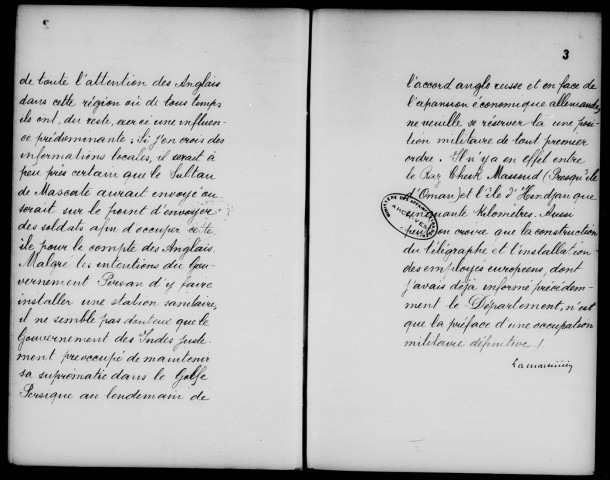 de toute l'attention des Anglais
dans cette région où de tous temps
ils ont, du reste, exercé une influen-
ce prédominante. Si j'en crois des
informations locales, il serait à
peu près certain que le Sultan
de Mascate aurait envoyé ou
serait sur le point d'envoyer
des soldats afin d'occuper cette
île pour le compte des Anglais.
Malgré les intentions du Gou-
vernement Persan d'y faire
installer une station sanitaire,
il ne semble pas douteux que le
Gouvernement des Indes juste-
ment preoccupé de maintenir
sa suprématie dans le Golfe
Persique au lendemain de
3
l'accord anglo russe et en face de
l'expansion économique allemande,
ne veuille se réserver là une posi-
tion militaire de tout premier
ordre. Il n'y a en effet entre
le Raz Cheik Massoud (Presqu'île
d'Oman) et l'île d'Hendjan que
cinquante kilomètres. Aussi
peut-on croire que la construction
du télégraphe et l'installation
des employes europeens, dont
j'avais déjà informé précédem-
ment le Département, n'est
que la préface d'une occupation
militaire définitive /.
ARCHIVES